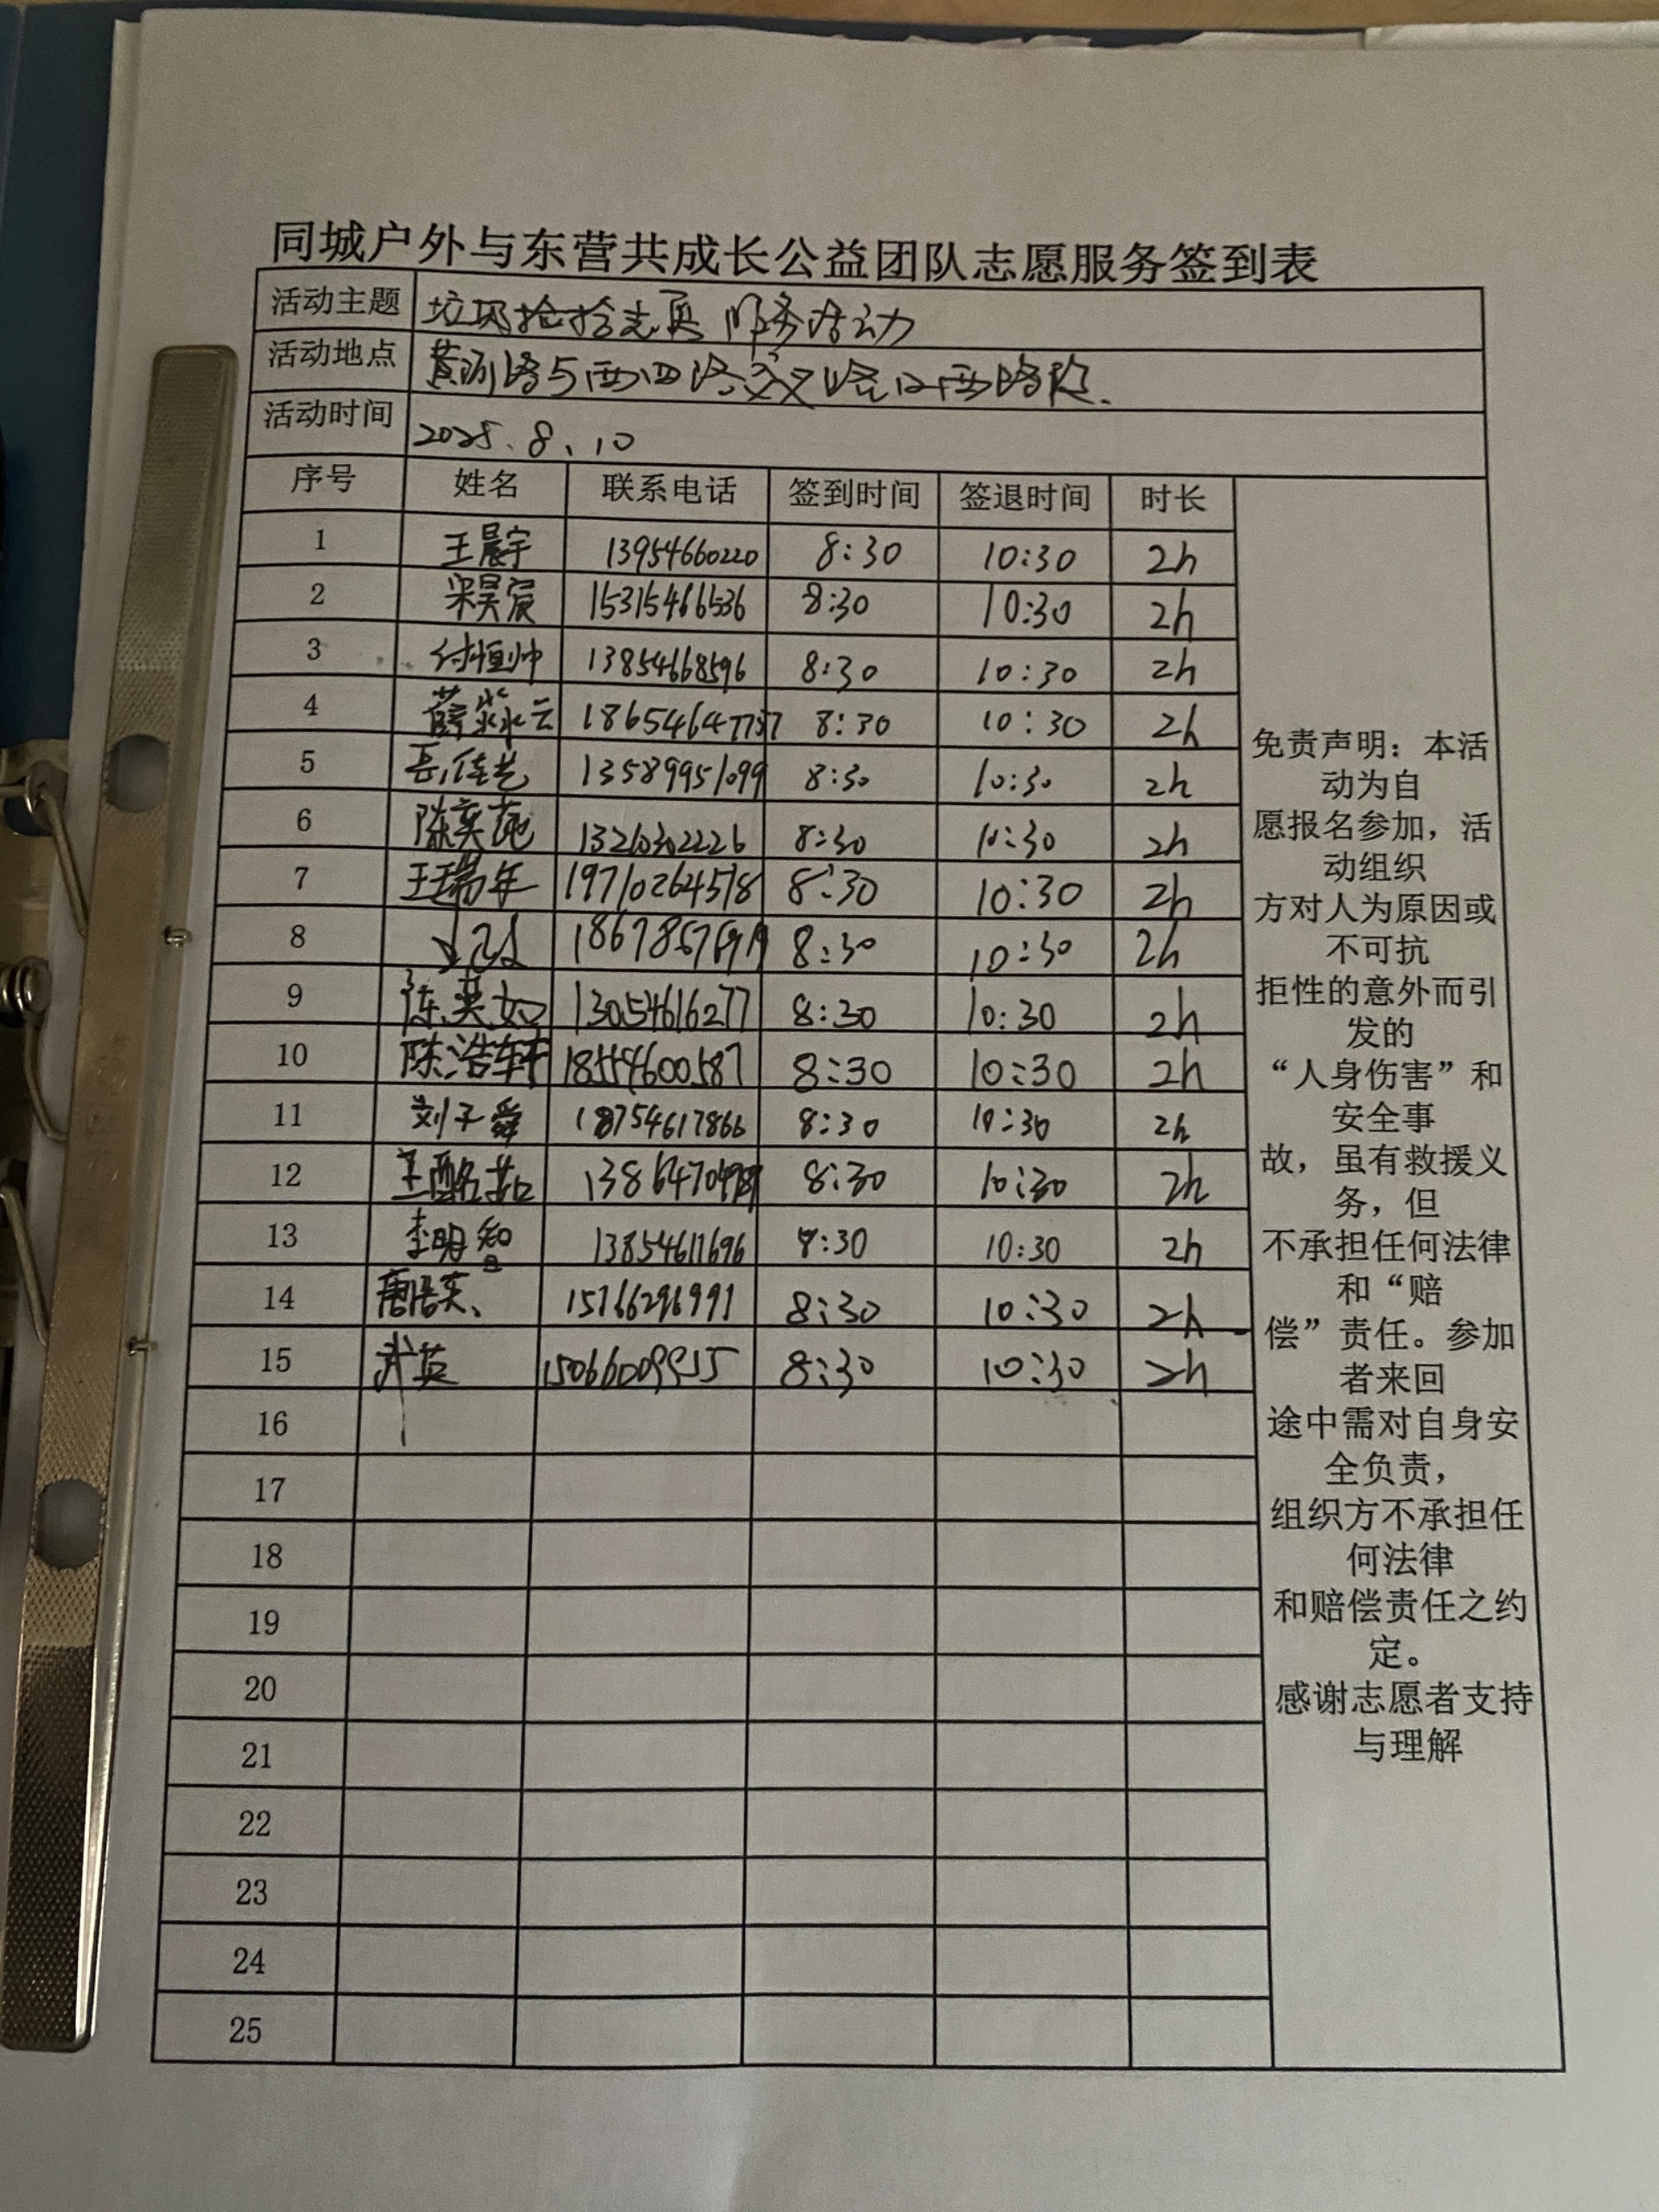 同城户外与东营共成长公益团队志愿服务签到表
活动主题 垃圾捡拾志愿服务活动
活动地点 黄河路与西四路交叉路口西路段.
活动时间 2025.8.10
序号 姓名 联系电话 签到时间 签退时间 时长
1 王晨宇 13954660220 8:30 10:30 2h
2 宋昊宸 15315466536 8:30 10:30 2h
3 付恒帅 13854668596 8:30 10:30 2h
4 薛 8:30 10:30 2h
5 岳佳艺 13589951099 8:30 10:30 2h
6 陈奕 8:30 10:30 2h
7 王瑞年 19710264518 8:30 10:30 2h
8 8:30 10:30 2h
9 陈英如 13054616277 8:30 10:30 2h
10 陈浩轩 18554600587 8:30 10:30 2h
11 刘子舜 18754617866 8:30 10:30 2h
12 王 8:30 10:30 2h
13 李明智 13854611696 8:30 10:30 2h
14 唐 15766296991 8:30 10:30 2h
15 武英 8:30 10:30 2h
16
17
18
19
20
21
22
23
24
25
免责声明：本活
动为自
愿报名参加，活
动组织
方对人为原因或
不可抗
拒性的意外而引
发的
“人身伤害”和
安全事
故，虽有救援义
务，但
不承担任何法律
和“赔
偿”责任。参加
者来回
途中需对自身安
全负责，
组织方不承担任
何法律
和赔偿责任之约
定。
感谢志愿者支持
与理解